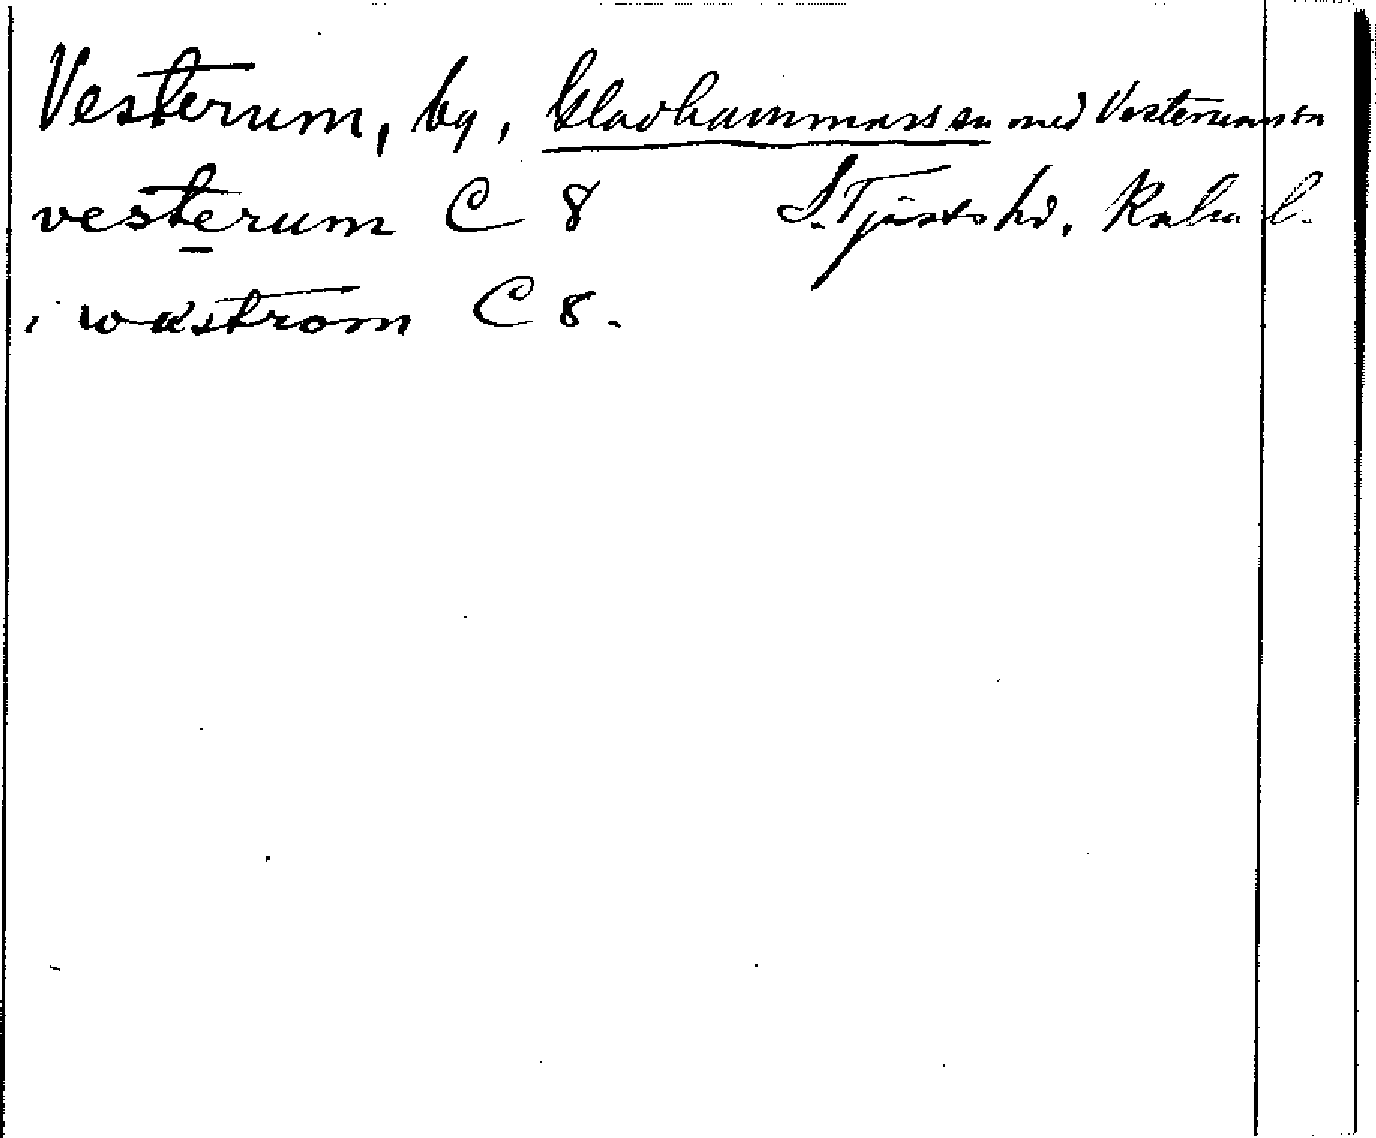 Vesterum, by, Gladhammars sn med Vesterums sn
vesterum C 8 S. Tjusts hd. Kalm. l.
i wastrom C 8.